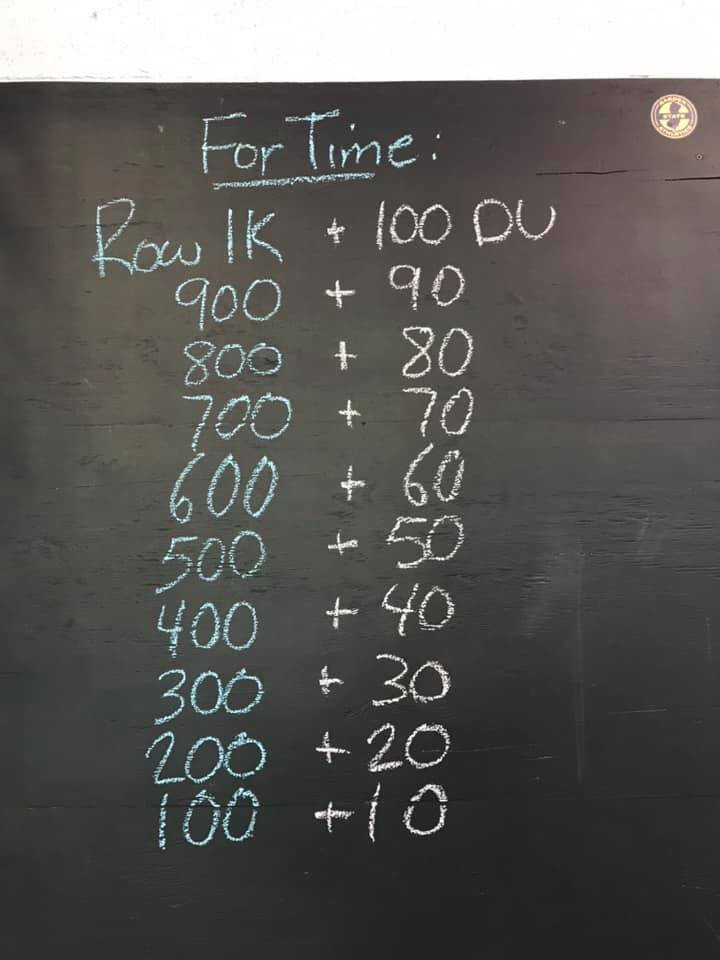 For Time:
Row 1K + 100 DU
900 + 90
800 + 80
700 + 70
600 + 60
500 + 50
400 + 40
300 + 30
200 + 20
100 + 10
STATE